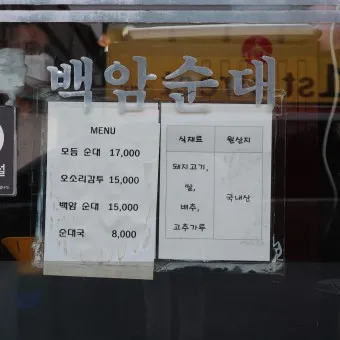 백암순대
1st
MENU
모듬 순대 17,000
오소리감투 15,000
백암 순대 15,000
순대국 8,000
식재료 원산지
돼지고기,
쌀,
배추,
고추가루
국내산